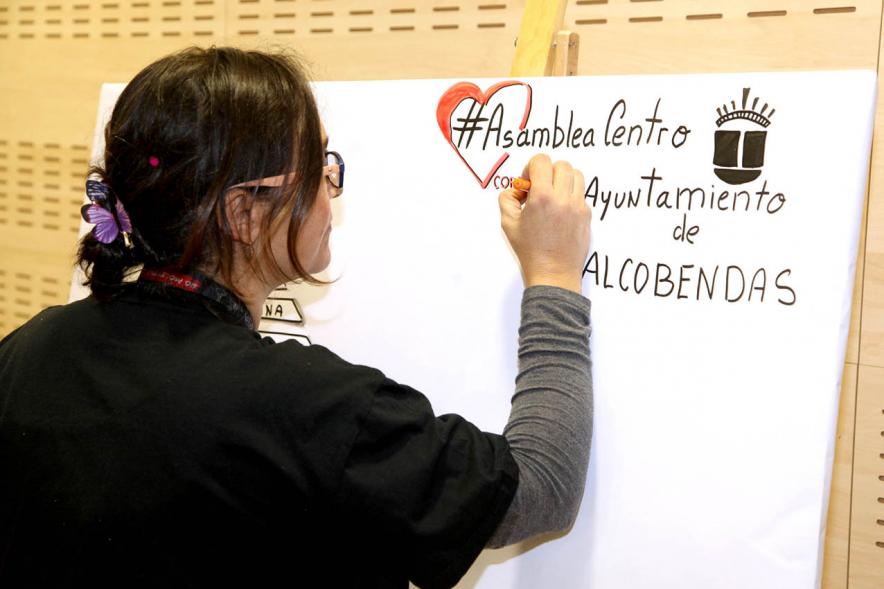 #Asamblea Centro
Ayuntamiento
de
ALCOBENDAS